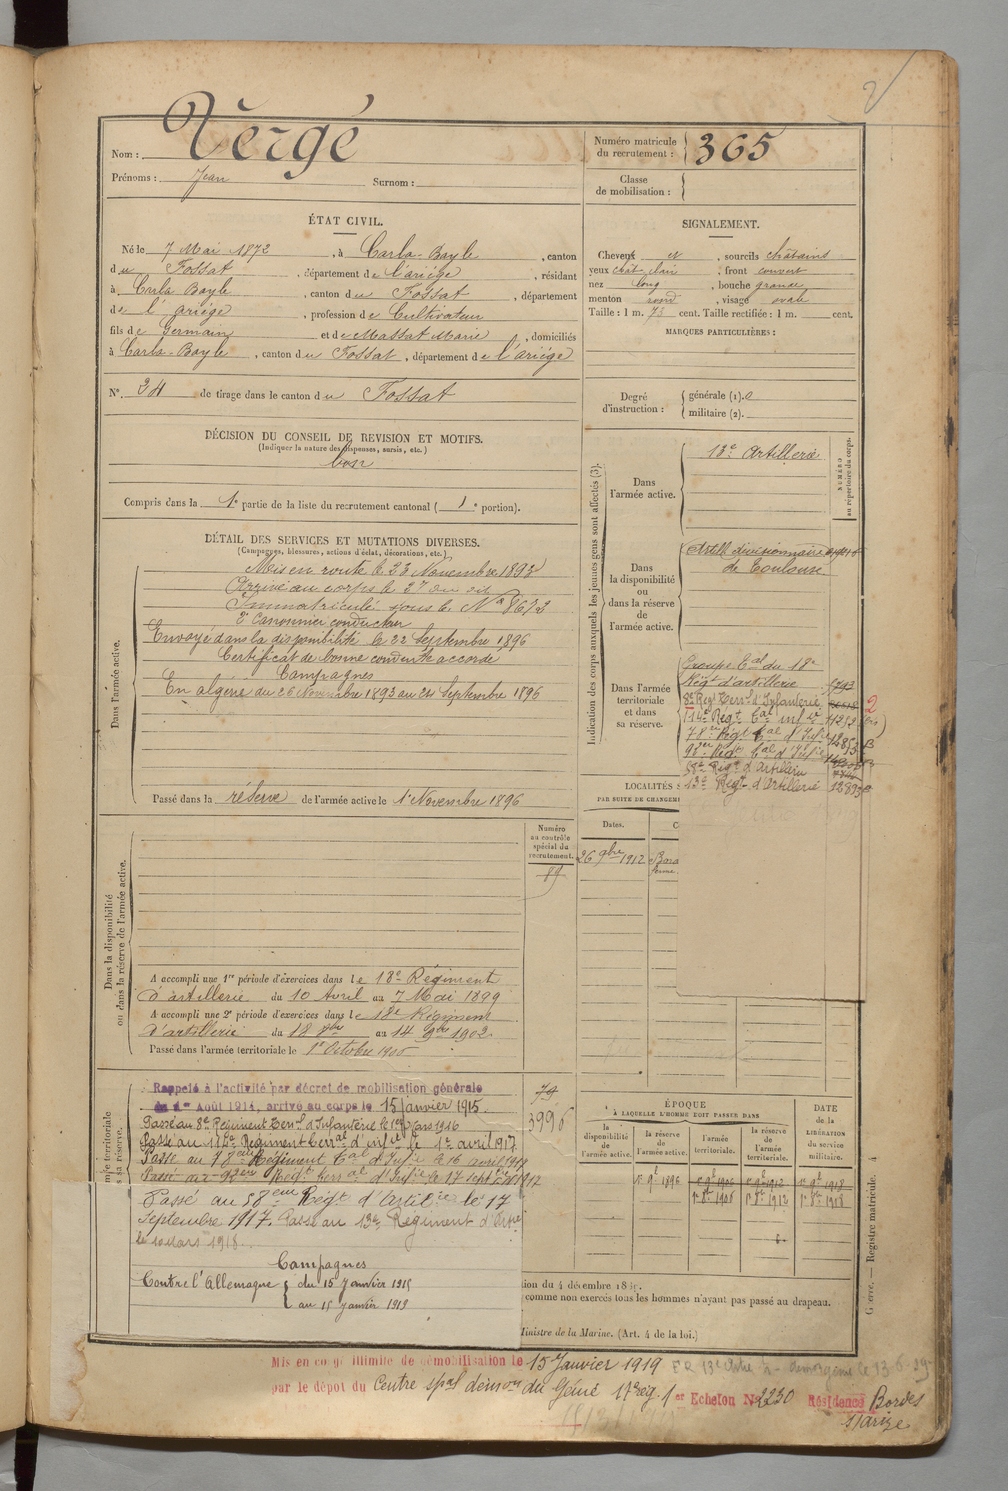 2
Nom : Vergé
Prénoms : Jean Surnom :
Numéro matricule du recrutement : 365
Classe de mobilisation :
ÉTAT CIVIL.
Né le 7 Mai 1872, à Carla-Bayle, canton
du Fossat, département de l'ariége, résidant
à Carla Bayle, canton du Fossat, département
de l'ariége, profession de Cultivateur
fils de Germain et de Massat Marie, domiciliés
à Carla-Bayle, canton du Fossat, département de l'ariége
N° 34 de tirage dans le canton du Fossat
SIGNALEMENT.
Cheveux et, sourcils châtains
yeux chât. clair, front couvert
nez long, bouche grande
menton rond, visage ovale
Taille : 1 m. 73 cent. Taille rectifiée : 1 m. cent.
MARQUES PARTICULIÈRES :
Degré d'instruction : générale (1). 0
militaire (2).
DÉCISION DU CONSEIL DE REVISION ET MOTIFS.
(Indiquer la nature des dispenses, sursis, etc.)
bon
Compris dans la 1e partie de la liste du recrutement cantonal ( 1 e portion).
DÉTAIL DES SERVICES ET MUTATIONS DIVERSES.
(Campagnes, blessures, actions d'éclat, décorations, etc.)
Dans l'armée active.
Mis en route le 23 Novembre 1893
Arrivé au corps le 27 du dit
Immatriculé sous le N°
2e Canonnier conducteur
Envoyé dans la disponibilité le 22 Septembre 1896
Certificat de bonne conduite accordé
Campagnes
En algérie du 26 Novembre 1893 au 21 Septembre 1896
Passé dans la réserve de l'armée active le 1er Novembre 1896
Indication des corps auxquels les jeunes gens sont affectés (3).
NUMÉRO au répertoire du corps.
Dans l'armée active.
13e Artillerie
Dans la disponibilité ou dans la réserve de l'armée active.
Artill divisionnaire
de Toulouse
Dans l'armée territoriale et dans sa réserve.
Groupe Tal du 18e
Régt d'artillerie
8e Régt Terral d'Infanterie
114e Régt Tal infie
78e Régt Tal d'Infie
93e Régt Tal d'Infie
58e Régt d'Artillerie
13e Régt d'Artillerie
LOCALITÉS S
PAR SUITE DE CHANGEM
Dates.
26 9bre 1912
Dans la disponibilité ou dans la réserve de l'armée active.
Numéro au contrôle spécial du recrutement.
89
A accompli une 1re période d'exercices dans le 18e Régiment
d'artillerie du 10 Avril au 7 Mai 1899
A accompli une 2e période d'exercices dans le 18e Régiment
d'artillerie du 18 8bre au 14 9bre 1902
Passé dans l'armée territoriale le 1er Octobre 1906
Rappelé à l'activité par décret de mobilisation générale
du 1er Août 1914, arrivé au corps le 15 janvier 1915.
Passé au 8e Régiment Terral d'Infanterie le 1er Mars 1916
Passé au 114e Régiment Terral d'infie le 1er avril 1917
Passé au 78eme Régiment Tal d'Infie le 16 avril 1917
Passé au 93eme Régt terral d'Infie le 17 sept 1917
Passé au 58eme Régt d'Artilie le 17
Septembre 1917. Passé au 13e Régiment d'Artie
le 10 Mars 1918.
Campagnes
Contre l'Allemagne { du 15 Janvier 1915
au 15 Janvier 1919
3996
ÉPOQUE
À LAQUELLE L'HOMME DOIT PASSER DANS
DATE DE LA LIBÉRATION du service militaire.
la disponibilité de l'armée active.
la réserve de l'armée active.
l'armée territoriale.
la réserve de l'armée territoriale.
1er 9bre 1896 1er 9bre 1906 1er 9bre 1912 1er 9bre 1918
1er 8bre 1906 1er 8bre 1912 1er 8bre 1918
comme non exercés tous les hommes n'ayant pas passé au drapeau.
Ministre de la Marine. (Art. 4 de la loi.)
Registre matricule.
Mis en congé illimité de démobilisation le 15 Janvier 1919
par le dépot du Centre spal démon du Génie 17e rég. 1er Echelon № 2230 Résidence Bordes
s/arize